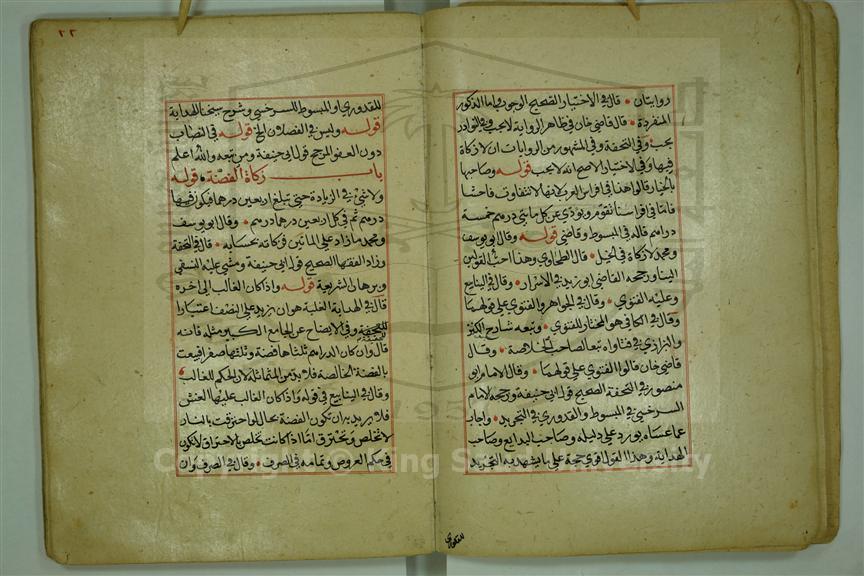 روايتان • قال في الاختيار الصحيح الوجوب واما الذكور
المنفردة • قال قاضي خان في ظاهر الرواية لا يجب وفي النوادر
يجب • وفي التحفة وفي المشهور من الروايات ان لا زكاة
فيها وفي الاختيار الاصح انه لا يجب قوله وصاحبها
بالخيار قالوا هذا في افراس العرب لانها لا تتفاوت فاحشا
فاما في افراسنا تقوم ويؤدي عن كل مايتي درهم خمسة
دراهم قاله في المبسوط وقاضي قوله وقال ابو يوسف
ومحمد لا زكاة في الخيل • قال الطحاوي وهذا احب القولين
الينا ورجحه القاضي ابو زيد في الاسرار • وقال في الينابيع
وعليه الفتوي • وقال في الجواهر والفتوي علي قولهما
وقال في الكافي هو المختار للفتوي • وتبعه شارح الكنز
والبزازي في فتاواه تبعا لصاحب الخلاصة • وقال
قاضي خان قالوا الفتوي علي قولهما • وقال الامام ابو
منصور في التحفة الصحيح قول ابي حنيفة ورجحه الامام
السرخسي في المبسوط والقدوري في التجريد • واجاب
عما عساه يورد علي دليله وصاحب البدايع وصاحب
الهداية وهذا القول اقوي حجة علي ما يشهد به التجريد
للقدوري
٢٢
للقدوري والمبسوط للسرخسي وشرح شيخنا للهداية
قوله وليس في الفصلان الخ قوله في النصاب
دون العفو المرجح قول ابي حنيفة ومن تبعه والله اعلم
باب زكاة الفضة • قوله
ولا شيء في الزيادة حتي تبلغ اربعين درهما فيكون فيها
درهم ثم في كل اربعين درهما درهم • وقال ابو يوسف
ومحمد ما زاد علي المائتين فزكاته بحسابه • قال في التحفة
وزاد الفقها الصحيح قول ابي حنيفة ومشي عليه النسفي
وبرهان الشريعة قوله واذا كان الغالب الي اخره
قال في الهداية الغلبة هو ان يزيد علي النصف اعتبارا
للحقيقة وفي الايضاح عن الجامع الكبير مثله فانه
قال وان كان الدراهم ثلثاها فضة وثلثها صفرا قبيعت
بالفضة الخالصة فلا بد من المماثلة لان الحكم للغالب
وقال في الينابيع في قوله واذا كان الغالب عليها الغش
فلا يريد به ان تكون الفضة بحال لو احترقت بالنار
لا تخلص وتحترق اما اذا كانت تخلص بالاحتراق لا تكون
في حكم العروض وتمامه في الصرف • وقال في الصرف وان